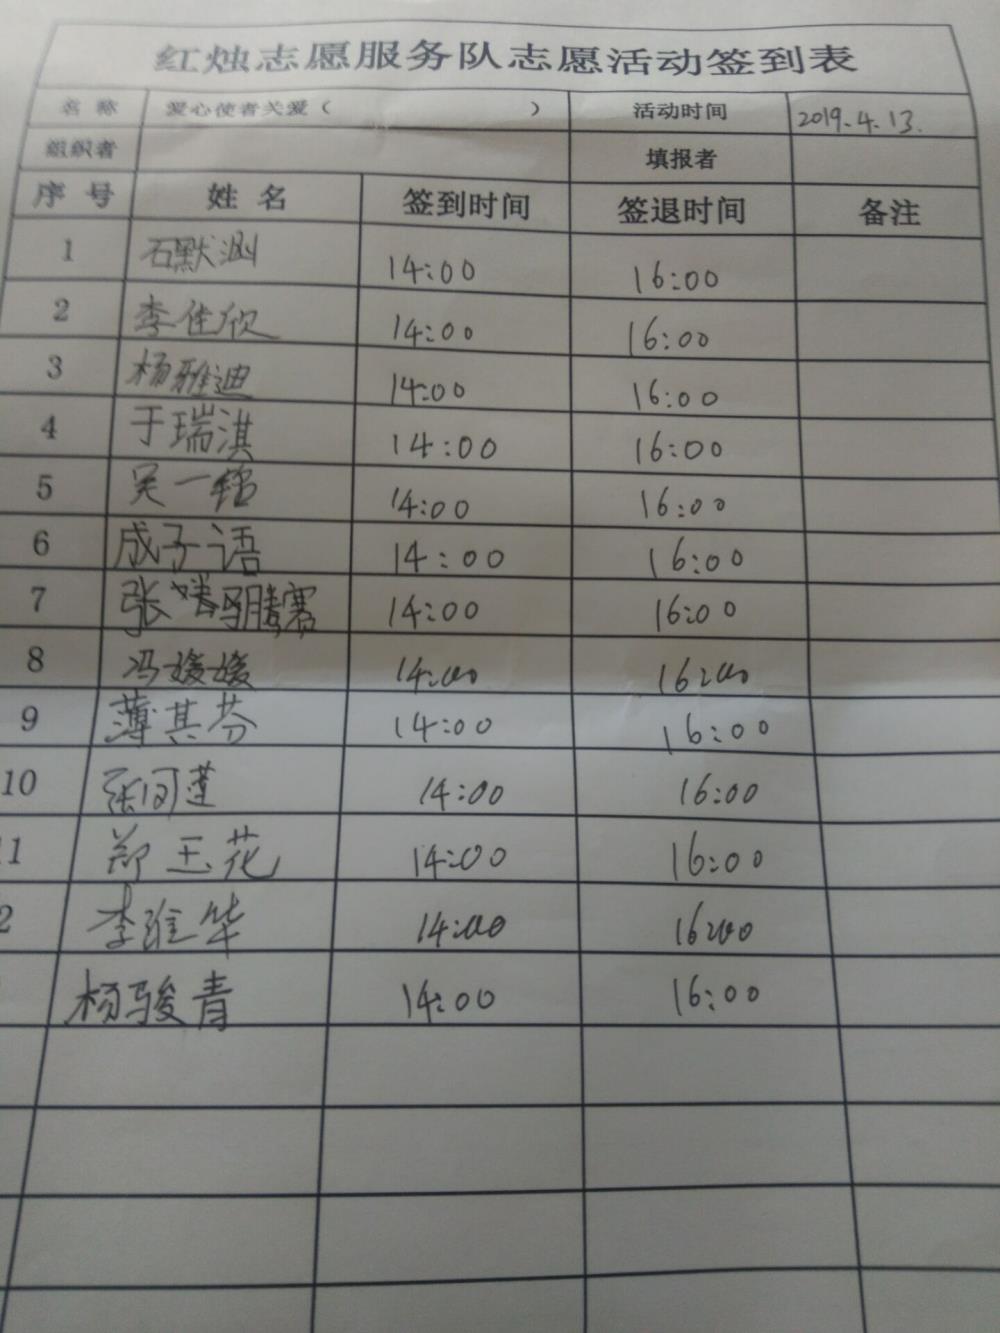 红烛志愿服务队志愿活动签到表
名 称 爱心使者关爱( ) 活动时间 2019.4.13.
组织者 填报者
序 号 姓 名 签到时间 签退时间 备注
1 石默涵 14:00 16:00
2 李佳欣 14:00 16:00
3 杨雅迪 14:00 16:00
4 于瑞淇 14:00 16:00
5 吴一铭 14:00 16:00
6 成子语 14:00 16:00
7 张 腾骞 14:00 16:00
8 冯媛媛 14:00 16:00
9 薄其芬 14:00 16:00
10 张同莲 14:00 16:00
11 郑玉花 14:00 16:00
2 李维华 14:00 16:00
杨骏青 14:00 16:00